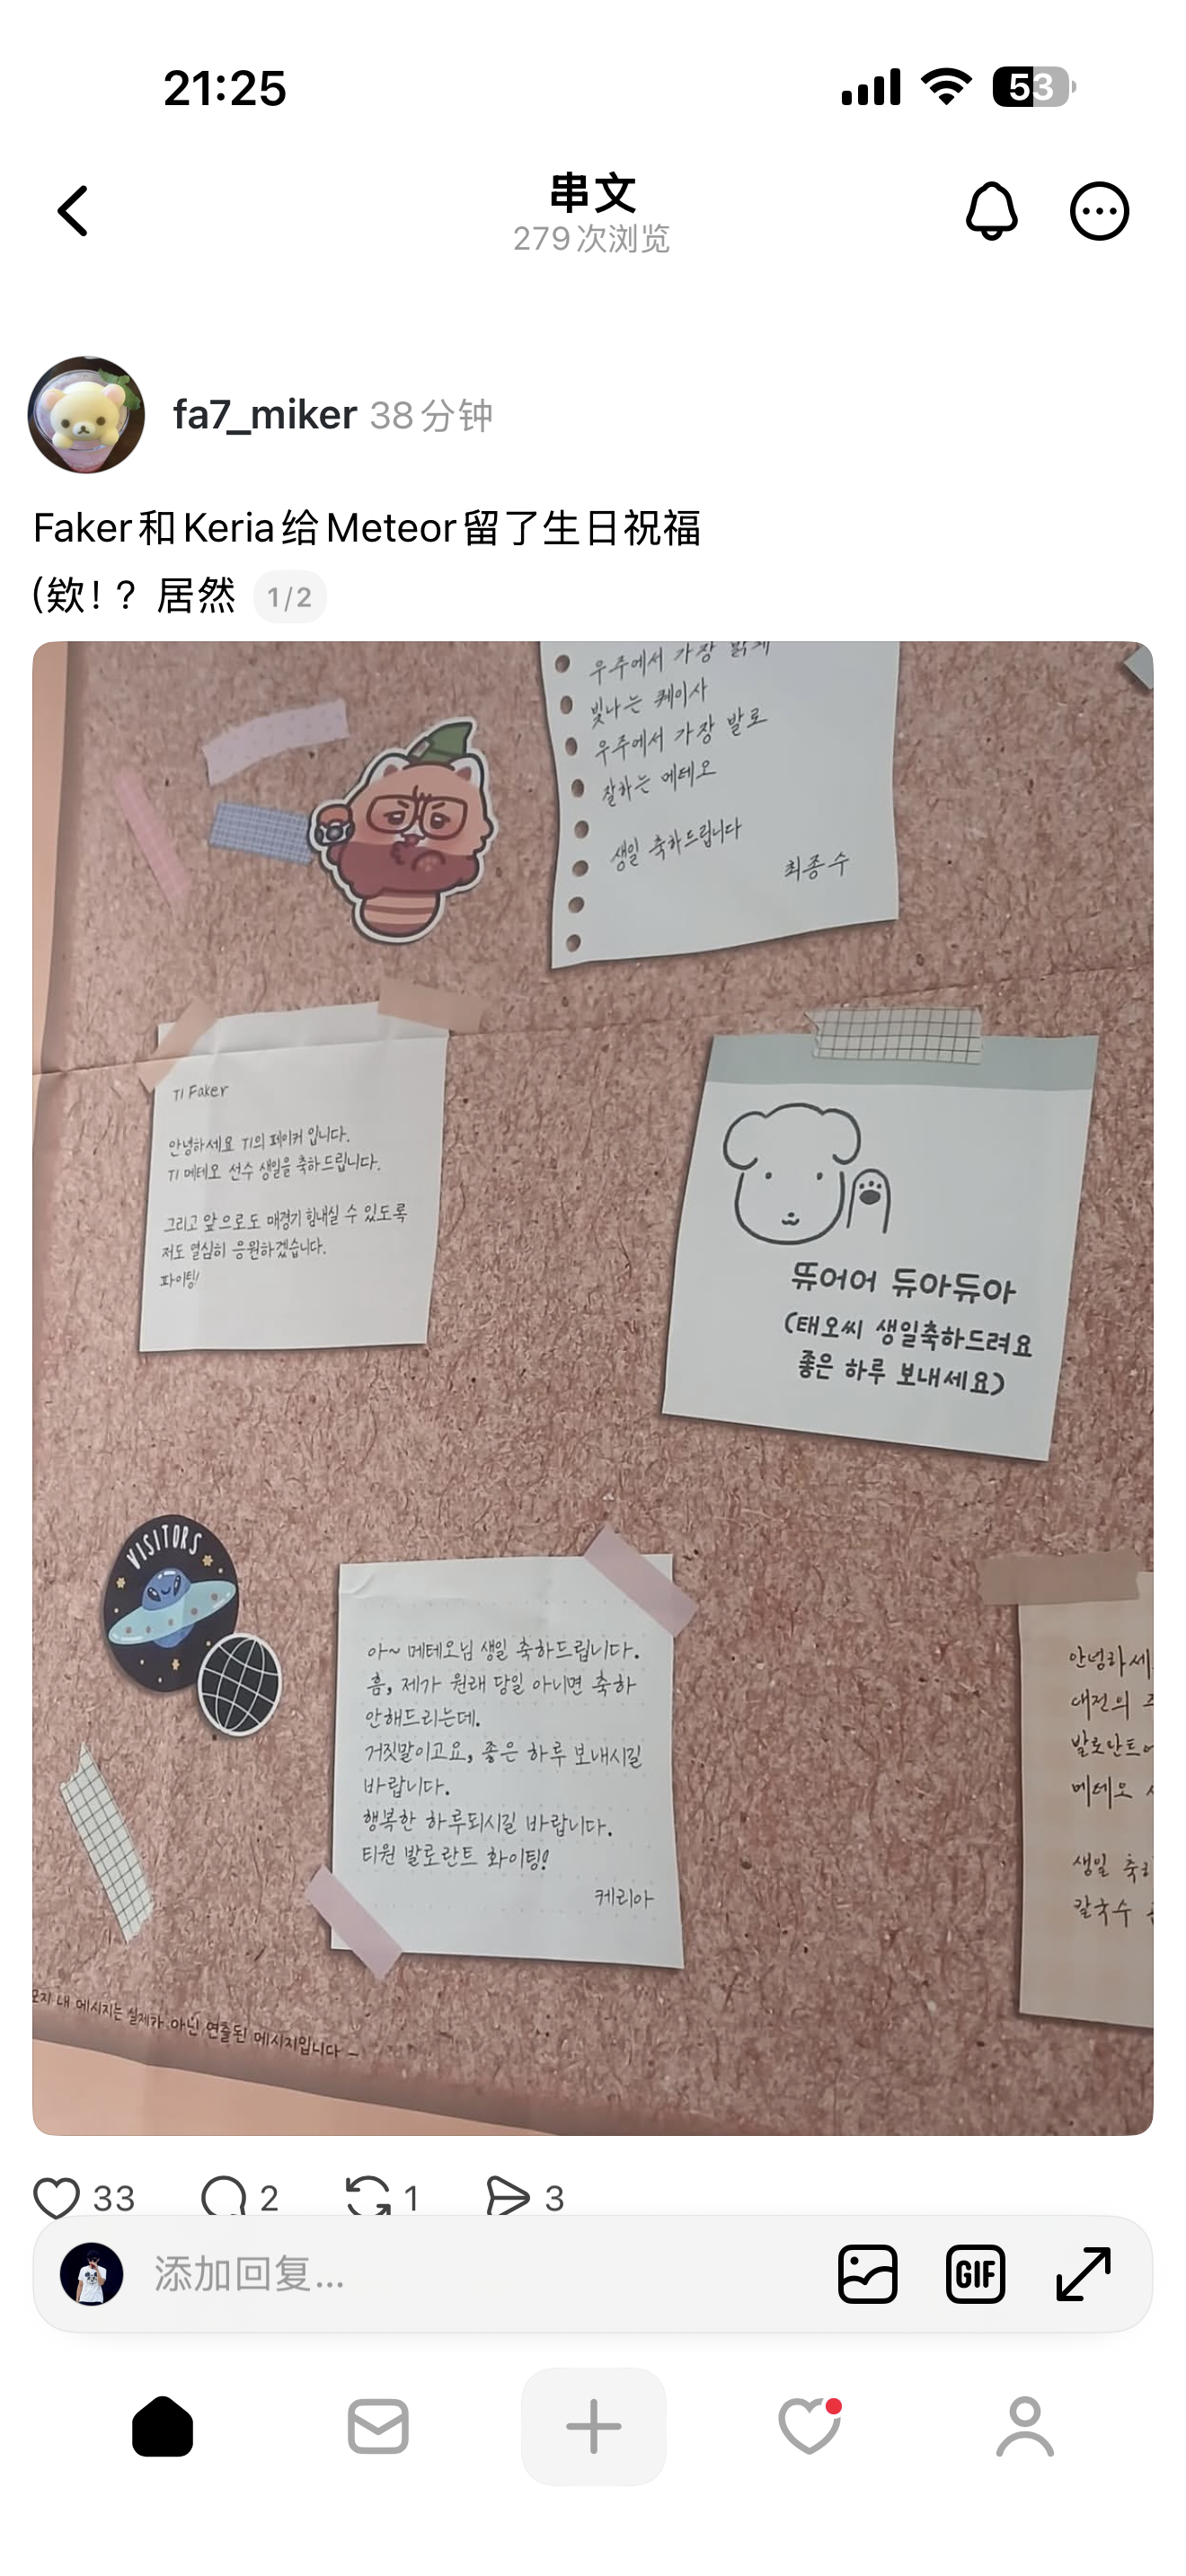 21:25
53
串文
279次浏览
fa7_miker 38分钟
Faker和Keria给Meteor留了生日祝福
(欸！？居然 1/2
우주에서 가장 밝게
빛나는 퀘이사
우주에서 가장 발로
잘하는 메테오
생일 축하드립니다
최종수
T1 Faker
안녕하세요 T1의 페이커 입니다.
T1 메테오 선수 생일을 축하드립니다.
그리고 앞으로도 매경기 힘내실 수 있도록
저도 열심히 응원하겠습니다.
파이팅!
뜌어어 듀아듀아
(태오씨 생일축하드려요
좋은 하루 보내세요)
VISITORS
아~ 메테오님 생일 축하드립니다.
흠, 제가 원래 당일 아니면 축하
안해드리는데.
거짓말이고요, 좋은 하루 보내시길
바랍니다.
행복한 하루되시길 바랍니다.
티원 발로란트 화이팅!
케리아
안녕하세
대전의
발로란트
메테오
생일 축하
칼국수
내 메시지는 실제가 아닌 연출된 메시지입니다 -
33 2 1 3
添加回复...
GIF